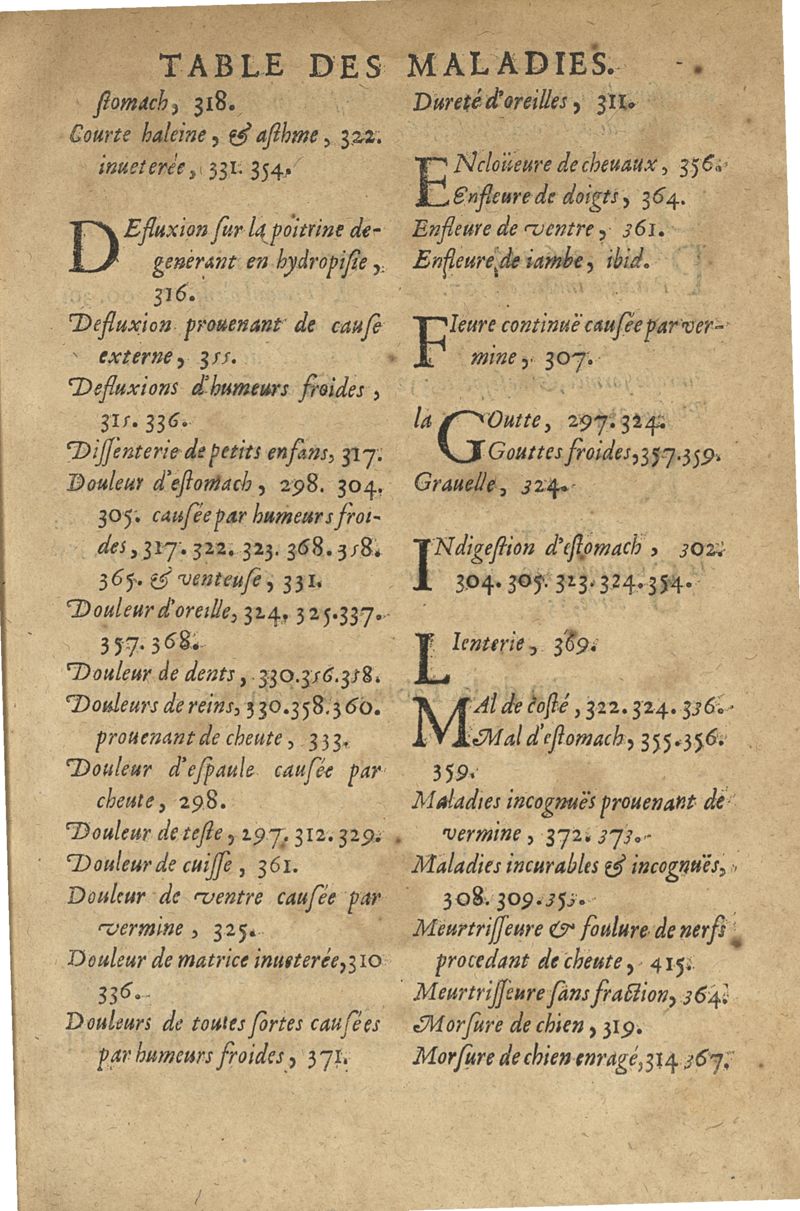 TABLE DES MALADIES.
ſtomach, 318.
Courte haleine, & aſthme, 322.
inueterée, 331. 354.
DEfluxion ſur la poitrine de-
generant en hydropiſie,
316.
Defluxion prouenant de cauſe
externe, 355.
Defluxions d'humeurs froides,
315. 336.
Diſſenterie de petits enfans, 317.
Douleur d'eſtomach, 298. 304.
305. cauſée par humeurs froi-
des, 317. 322. 323. 368. 358.
365. & venteuſe, 331.
Douleur d'oreille, 324. 325. 337.
357. 368.
Douleur de dents, 330. 356. 358.
Douleurs de reins, 330. 358. 360.
prouenant de cheute, 333.
Douleur d'eſpaule cauſée par
cheute, 298.
Douleur de teſte, 297. 312. 329.
Douleur de cuiſſe, 361.
Douleur de ventre cauſée par
vermine, 325.
Douleur de matrice inueterée, 310
336.
Douleurs de toutes ſortes cauſées
par humeurs froides, 371.
Dureté d'oreilles, 311.
ENcloüeure de cheuaux, 356.
Enfleure de doigts, 364.
Enfleure de ventre, 361.
Enfleure de iambe, ibid.
FIeure continuë cauſée par ver-
mine, 307.
la GOutte, 297. 324.
Gouttes froides, 357. 359.
Grauelle, 324.
INdigeſtion d'eſtomach, 302.
304. 305. 323. 324. 354.
LIenterie, 369.
MAl de coſté, 322. 324. 336.
Mal d'eſtomach, 355. 356.
359.
Maladies incognuës prouenant de
vermine, 372. 373.
Maladies incurables & incognuës,
308. 309. 353.
Meurtriſſeure & foulure de nerfs
procedant de cheute, 415.
Meurtriſſeure ſans fraction, 364.
Morſure de chien, 319.
Morſure de chien enragé, 314 367.